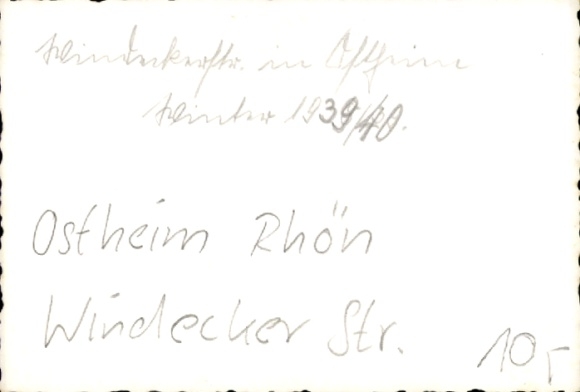 Windeckerstr. in Ostheim
Winter 1939/40.
Ostheim Rhön
Windecker Str.
10,-